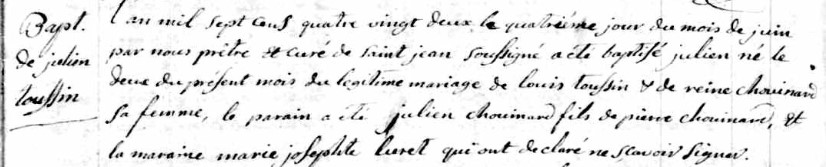 Bapt.
de julien
toussin
L'an mil sept cens quatre vingt deux le quatriéme jour du mois de juin
par nous prêtre & curé de saint jean soussigné a été baptisé julien né le
deux du présent mois du legitime mariage de louis toussin & de reine chouinard
sa femme, le parain a été julien chouinard fils de pierre chouinard, &
la maraine marie josephte qui ont declaré ne scavoir signer.